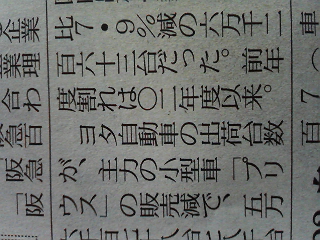 企業
業理
合わ
急百
阪急
「阪
比7・9%減の六万千二
百六十三台だった。前年
度割れは〇二年度以来。
ヨタ自動車の出荷台数
が、主力の小型車「プリ
ウス」の販売減で、五万
車
7
百